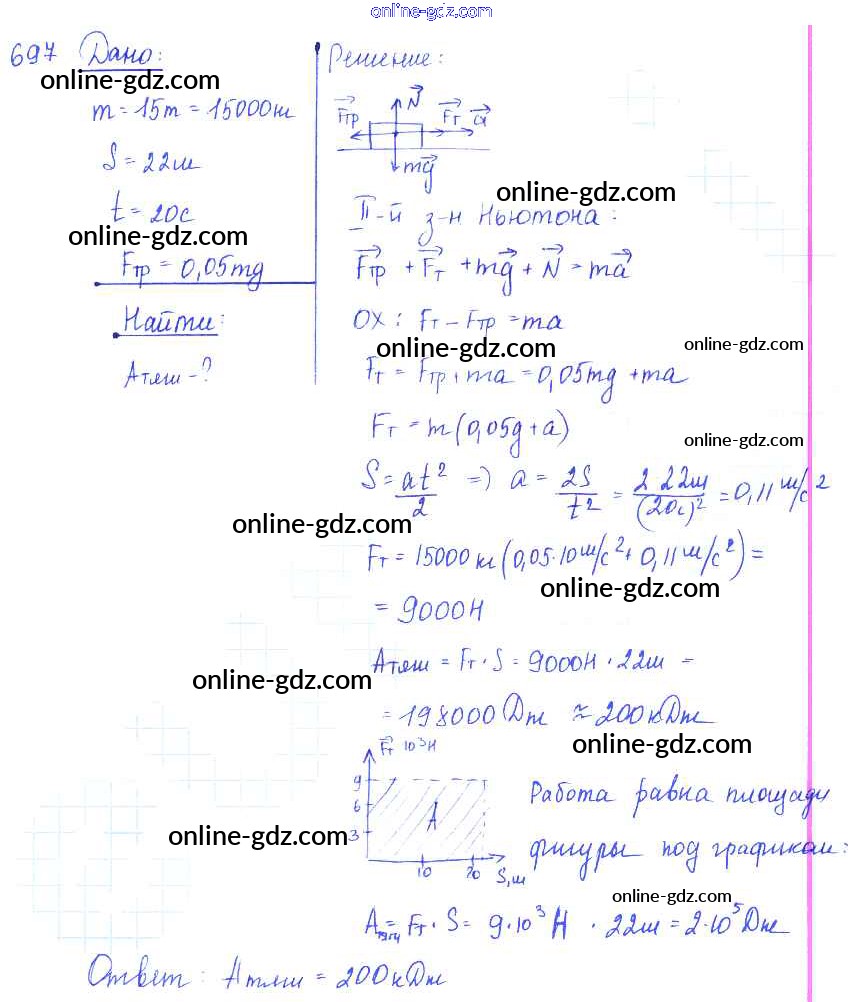 online-gdz.com
697 Дано:
online-gdz.com
m = 15т = 15000кг
S = 22м
t = 20с
online-gdz.com
Fтр = 0,05mg
Найти:
Aтяги - ?
Решение:
Fтр N Fт a
mg
online-gdz.com
II-й з-н Ньютона:
Fтр + Fт + mg + N = ma
OX: Fт - Fтр = ma
online-gdz.com
online-gdz.com
Fт = Fтр + ma = 0,05mg + ma
Fт = m(0,05g + a)
online-gdz.com
S = at²/2 => a = 2S/t² = 2·22м/(20с)² = 0,11 м/с²
online-gdz.com
Fт = 15000 кг (0,05·10м/с² + 0,11м/с²) =
online-gdz.com
= 9000Н
Aтяги = Fт · S = 9000Н · 22м =
online-gdz.com
= 198000 Дж ≈ 200кДж
online-gdz.com
Fт 10³Н
9
6
3
A
10 20 S, м
online-gdz.com
Работа равна площади
фигуры под графиком:
online-gdz.com
Aтяги = Fт · S = 9·10³ Н · 22м = 2·10⁵ Дж
Ответ: Aтяги = 200кДж